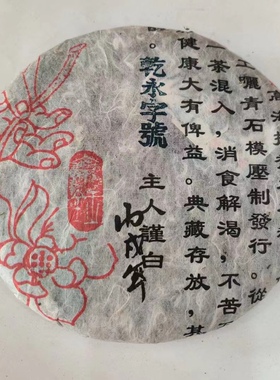 工曬青石模壓制發行。從
一茶混入,消食解渴,不苦不
健康大有俾益。典藏存放,其
。乾永字號
主人謹白
丙戌年